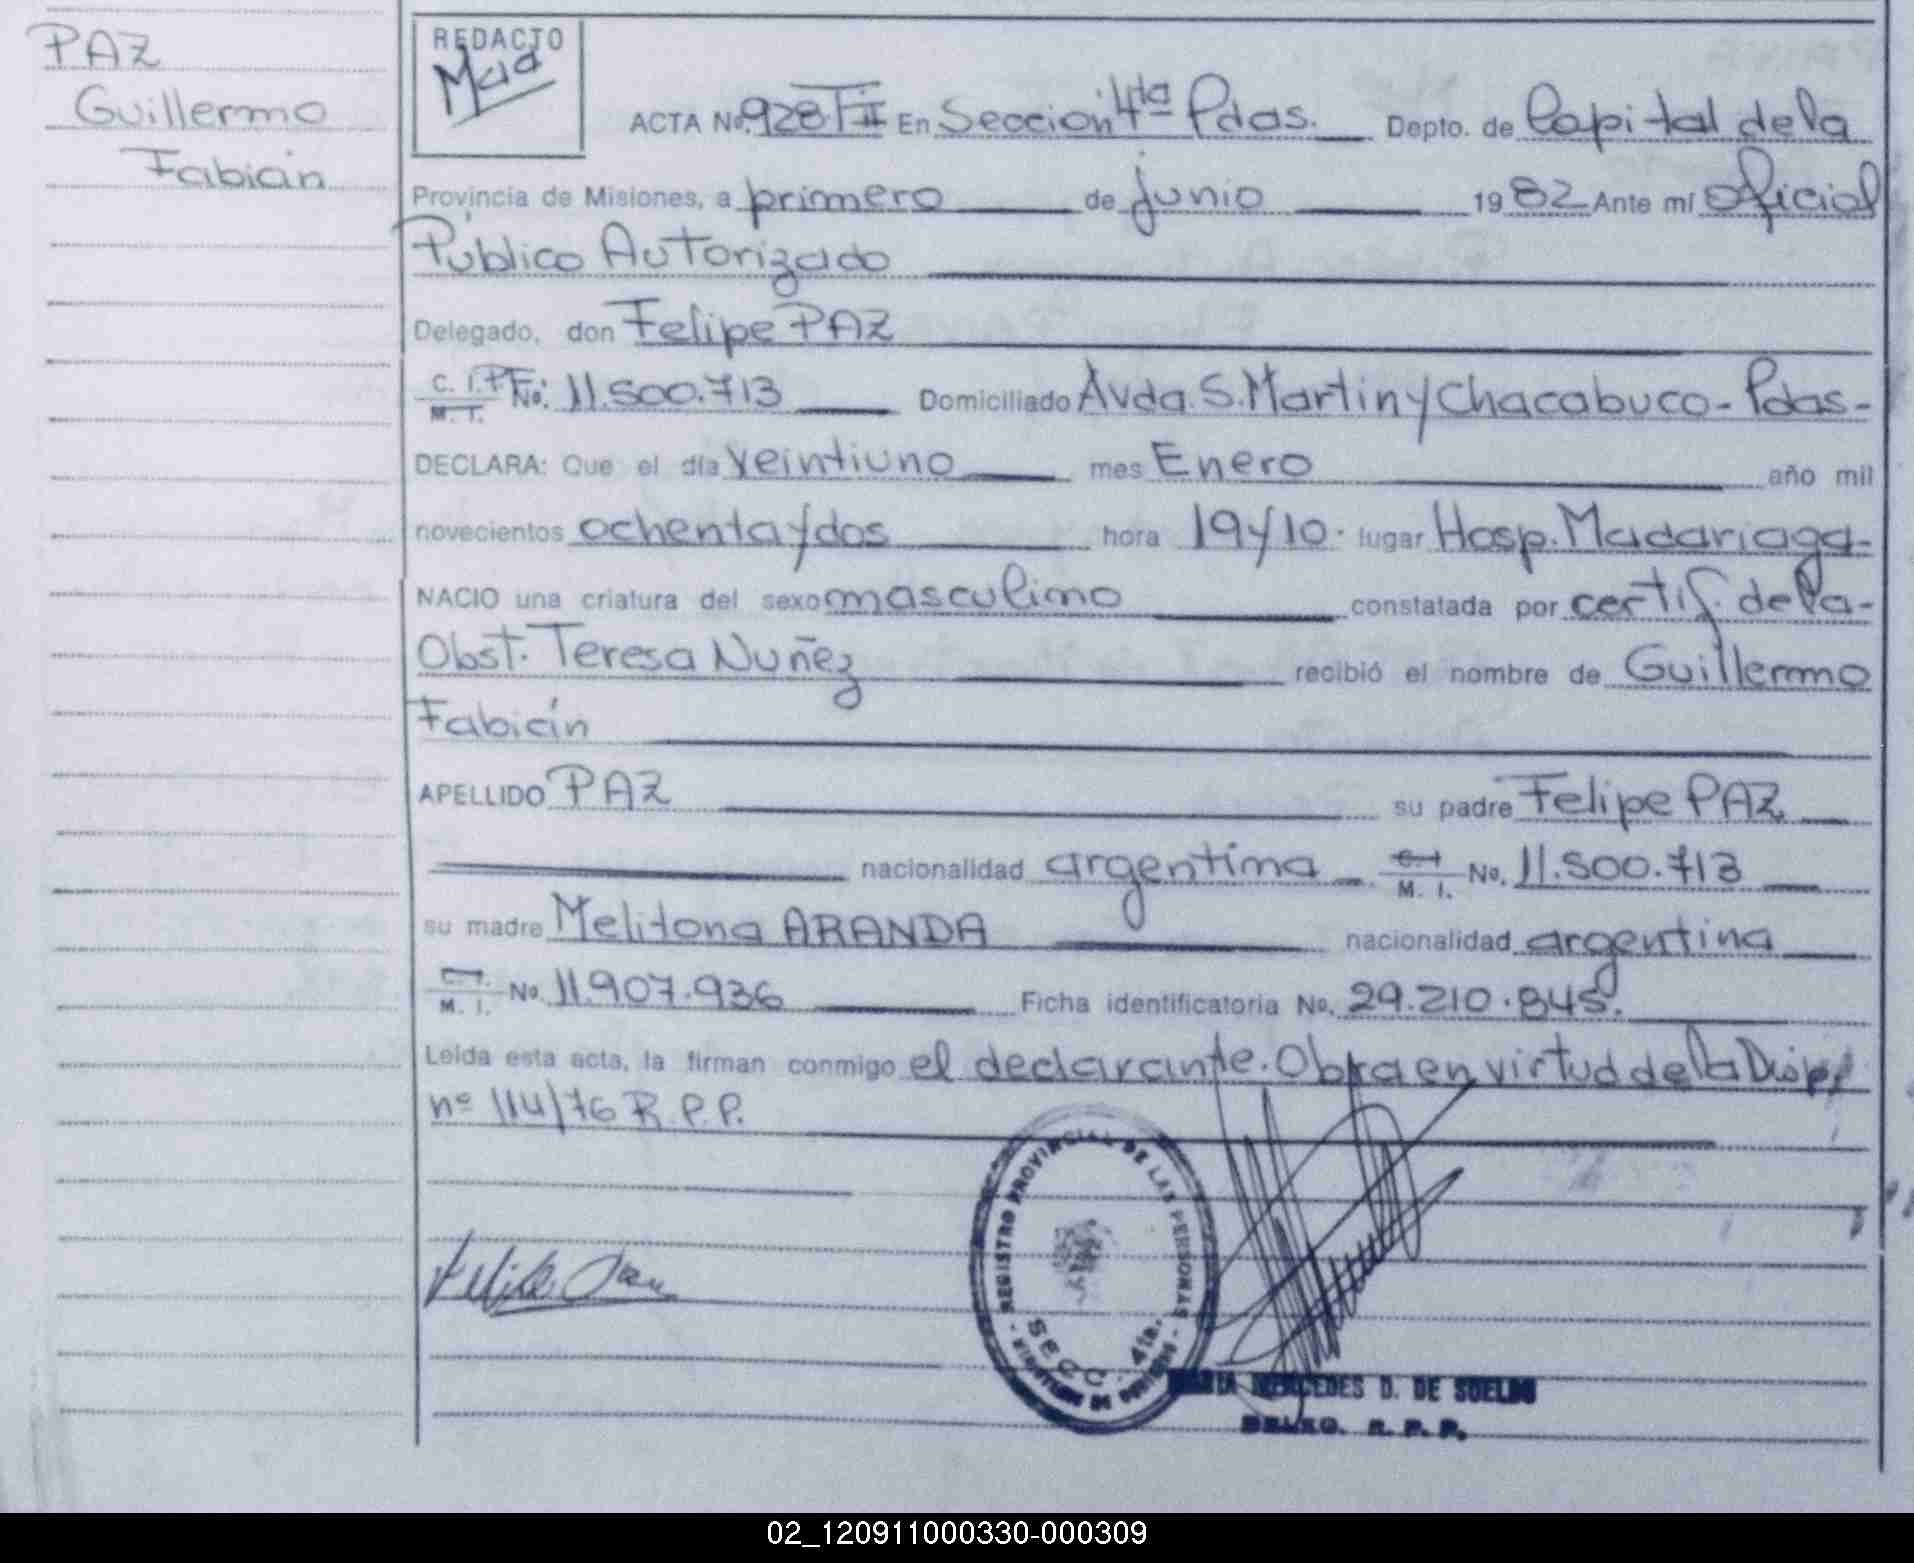 PAZ
Guillermo
Fabián
REDACTO
ACTA No. 928 T II En Sección 4ta Pdas. Depto. de Capital de la
Provincia de Misiones, a primero de junio 1982 Ante mí Oficial
Público Autorizado
Delegado, don Felipe PAZ
C. I. PF
M. I. No. 11.500.713 Domiciliado Avda. S. Martin y Chacabuco - Pdas -
DECLARA: Que el día veintiuno mes Enero año mil
novecientos ochenta y dos hora 19 y 10. lugar Hosp. Madariaga-
NACIO una criatura del sexo masculino constatada por certif. de la-
Obst. Teresa Nuñez recibió el nombre de Guillermo
Fabián
APELLIDO PAZ su padre Felipe PAZ
nacionalidad argentina C. I.
M. I. No. 11.500.713
su madre Melitona ARANDA nacionalidad argentina
C. I.
M. I. No. 11.907.936 Ficha identificatoria No. 29.210.845.
Leída esta acta, la firman conmigo el declarante. Obra en virtud de la Disp.
nº 114/76 R.P.P.
REGISTRO PROVINCIAL DE LAS PERSONAS
SECC. 4ta.
MARIA MERCEDES D. DE SUELDO
DELEG. R. P. P.
02_120911000330-000309